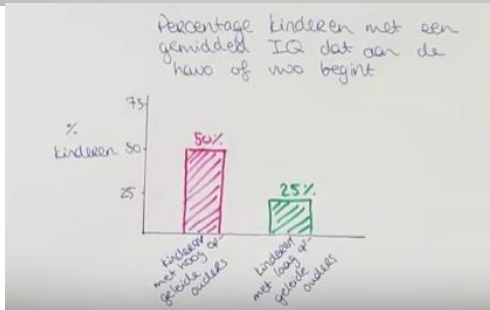 Percentage kinderen met een
gemiddeld IQ dat aan de
havo of vwo begint
75
%
kinderen 50
25
50%
25%
kinderen
met hoog op-
geleide
ouders
kinderen
met laag op-
geleide
ouders